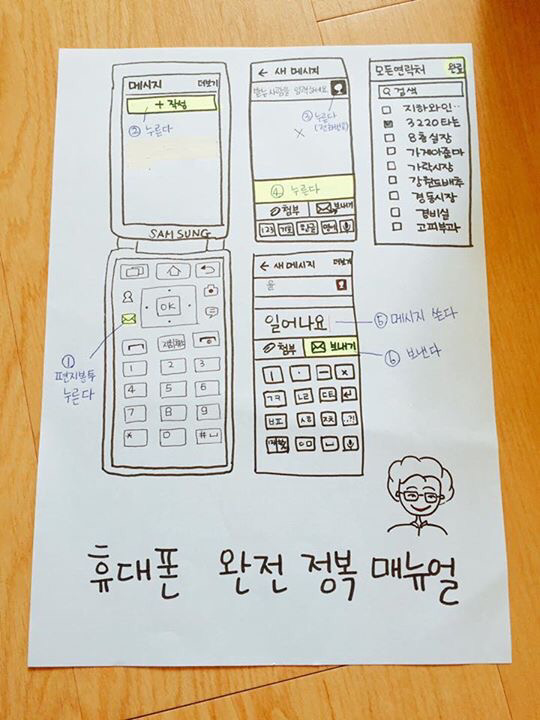 메시지 더보기
+ 작성
② 누른다
SAMSUNG
OK
① 편지봉투
누른다
1 2 3
4 5 6
7 8 9
* 0 #
← 새 메시지
받는사람을 입력하세요
③ 누른다
(전화번호)
×
④ 누른다
첨부 보내기
123 기호 한글
모든연락처 완료
검색
지하와인..
3220타는
8층실장
가게아줌마
가락시장
강원도배추
경동시장
경비실
고피부과
← 새 메시지 더보기
일어나요
⑤ 메시지 쓴다
첨부 보내기
⑥ 보낸다
ㅣ · ㅡ ×
ㄱㅋ ㄴㄹ ㄷㅌ ↵
ㅂㅍ ㅅㅎ ㅈㅊ .,?!
ㅇㅁ
휴대폰 완전 정복 매뉴얼